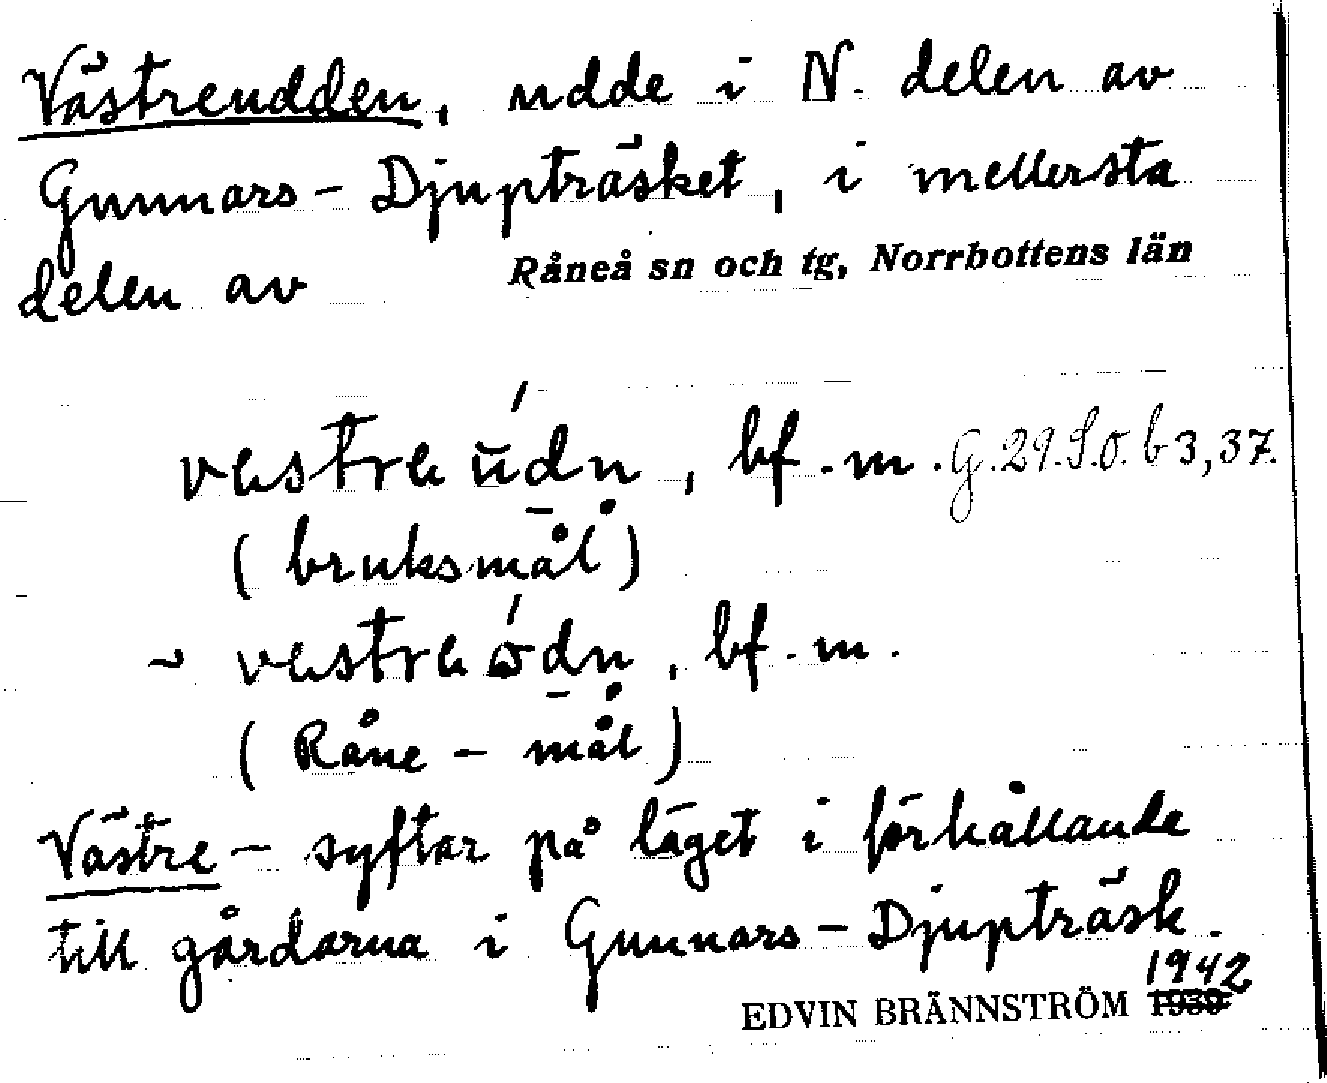 Västreudden, udde i N. delen av
Gunnars-Djupträsket, i mellersta
delen av Råneå sn och tg, Norrbottens län
vestre údn, bf. m. G.29.S.O. b 3,37.
(bruksmål)
~ vestre ódn, bf. m.
(Råne-mål)
Västre- syftar på läget i förhållande
till gårdarna i Gunnars-Djupträsk.
EDVIN BRÄNNSTRÖM 1939 1942